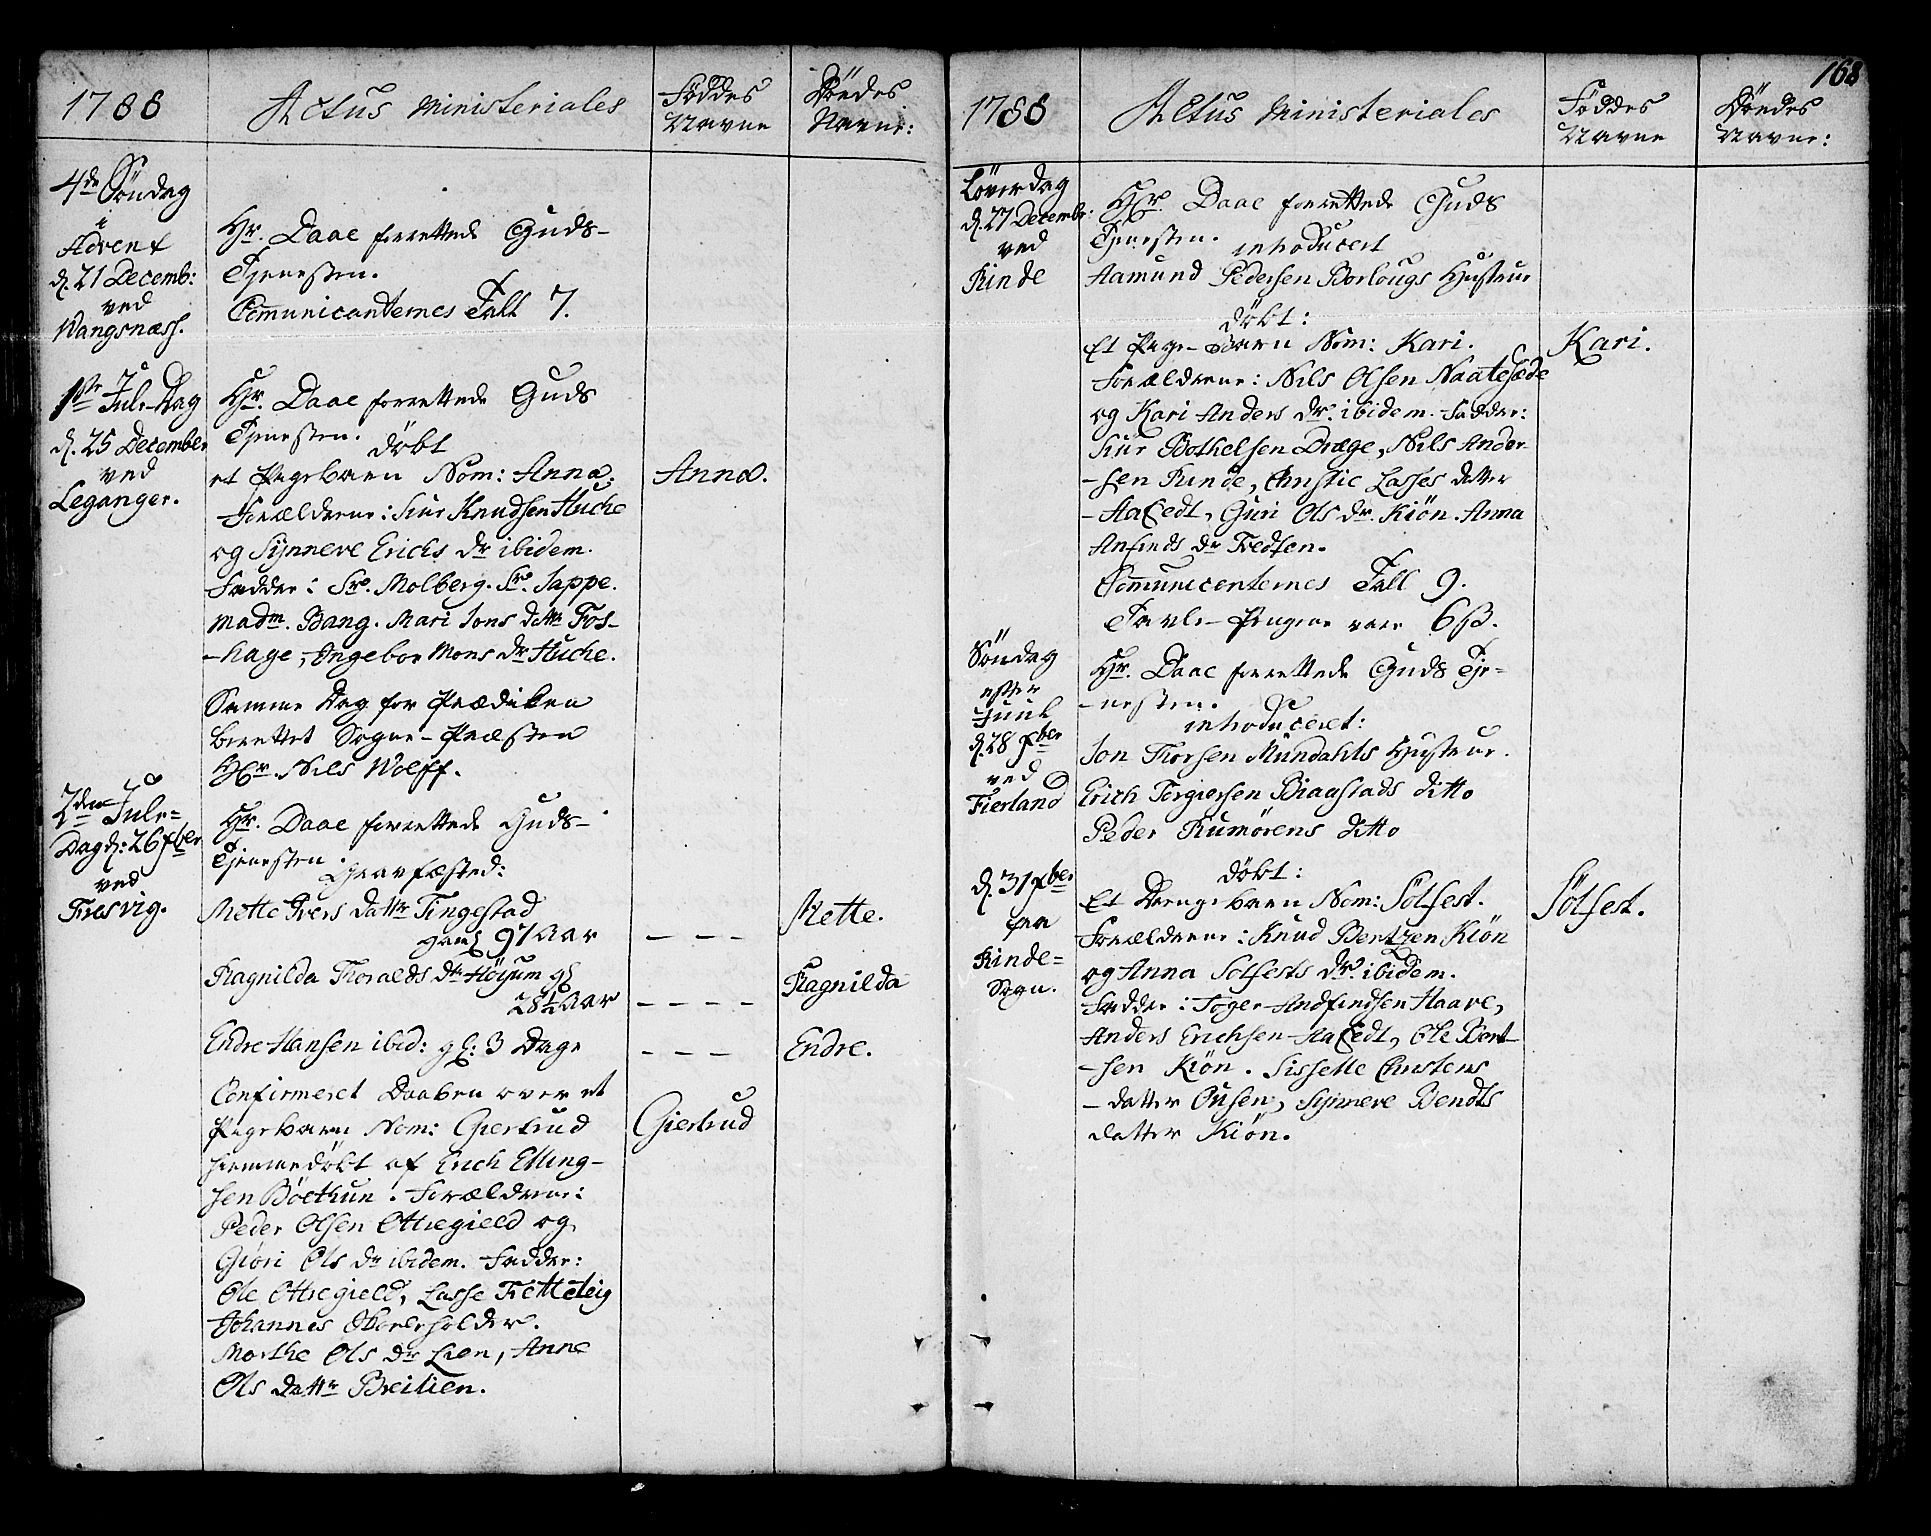 168
1788
Actus Ministeriales
Föddes
Navne
Döedes
Navne:
4de Söndag
i
Advent
d. 21 Decemb:
ved
Wangsnæss.
Hr. Daae forrettede Guds-
Tjenesten.
Communicanternes Tall 7.
1ste Jule-Dag
d. 25 December
ved
Leganger.
Hr. Daae forrettede Guds
Tjenesten.
döbt
et Pigebarn Nom: Anna.
Anna.
Forældrene: Siur Knudsen Huche
og Synneve Erichs dr ibidem.
Faddere: Sr. Molberg. Sr. Jappe.
Madm. Bang. Mari Jons dattr Fos-
-hage, Ingebor Mons dr Huche.
Samme Dag for Prædiken
berettet Sogne-Præsten
Hr. Nils Wolff.
2den Jule-
Dag d: 26 xber
ved
Fresvig.
Hr. Daae forrettede Guds-
Tjenesten.
Gravfæsted:
Mette Ivers dattr Tingestad
gaml 97 Aar
- - -
Mette.
Ragnilda Thoralds dr Höyum gl
28½ Aar
- - - -
Ragnilda
Endre Hansen ibid: gl: 3 Dage
- - -
Endre.
Confirmeret Daaben over et
Pigebarn Nom: Giertrud
Giertrud
hiemmedöbt af Erich Elling-
sen Böethun. Forældrene:
Peder Olsen Ottregield og
Giöri Ols dr ibidem. Faddere:
Ole Ottregield, Lasse Tretteteig
Johannes
Marthe Ols dr Lien, Anne
Ols dattr Breilien.
1788
Actus Ministeriales
Föddes
Navne
Döedes
Navne:
Löverdag
d. 27 Decembr:
ved
Rinde
Hr. Daae forrettede Guds
Tjenesten.
introducert
Aamund Pedersen Borlougs Hustrue
döbt:
Et Pige-Barn Nom: Kari.
Kari.
Forældrene: Nils Olsen Naatesæde
og Kari Anders dr. ibidem. Faddere:
Siur Bothelsen Dræge, Nils Ander-
-sen Rinde, Christie Lasses datter
-Hafledt, Guri Ols dr. Kiön. Anna
Anfinds dr Tredsen.
Communicanternes Tall 9.
Tavle-Pengene vare 6 ß.
Söndag
efter
Juul
d. 28 xber
ved
Fierland
Hr. Daae forrettede Guds Tje-
-nesten.
introduceret:
Jon Thorsen Mundahls Hustrue.
Erich Torgiersen Biaastads ditto
Peder Rumörens ditto
d. 31 xber
paa
Rinde-
Sogn.
döbt:
Et Drengebarn Nom: Sölfest.
Sölfest.
Forældrene: Knud Bentzen Kiön
og Anna Solfests dr. ibidem.
Faddere: Toger Andfindsen Haave,
Anders Erichsen Hafledt, Ole Bent-
-sen Kiön. Sissette Christens
-datter Ousen, Synneve Bendts
datter Kiön.